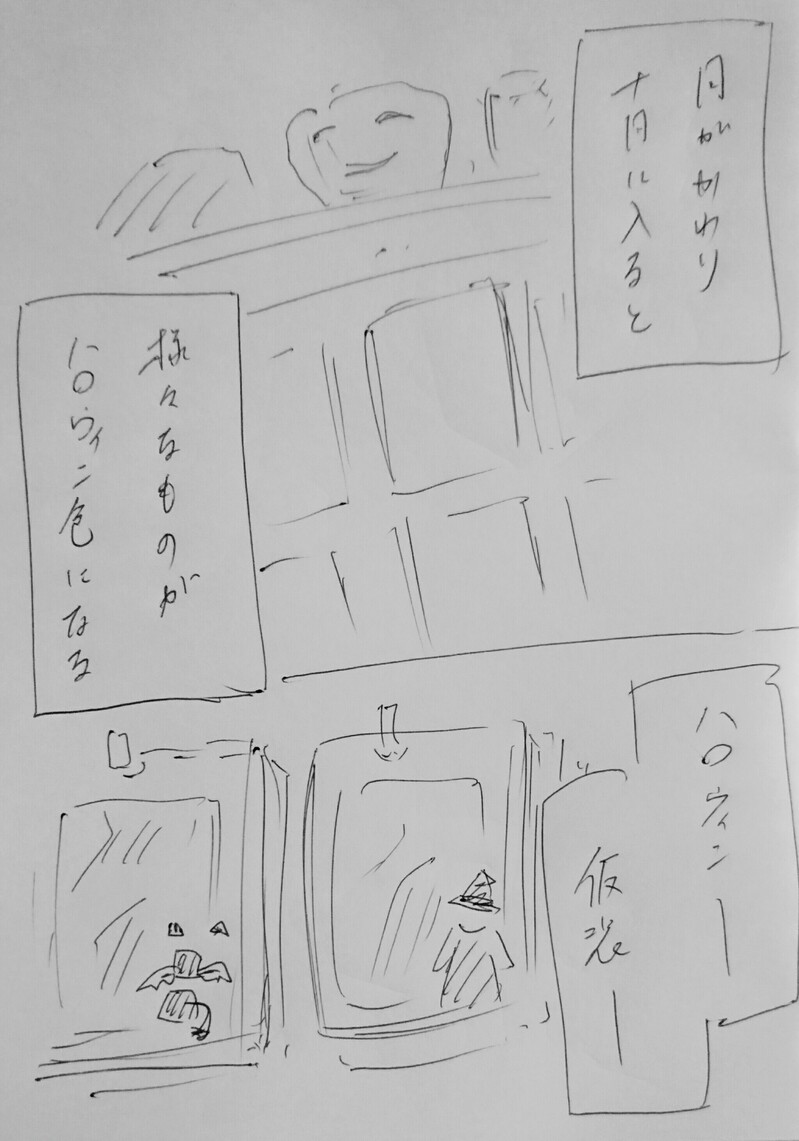 月がかわり
十月に入ると
様々なものが
ハロウィン色になる
ハロウィンー
仮装ー